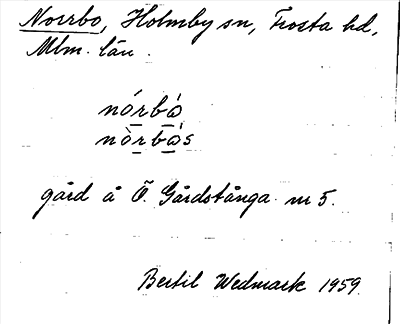 Norrbo, Holmby sn, Frosta hd,
Mlm. län.
nórbò
nòrbòs
gård å Ö. Gårdstånga nr 5.
Bertil Wedmark 1959.